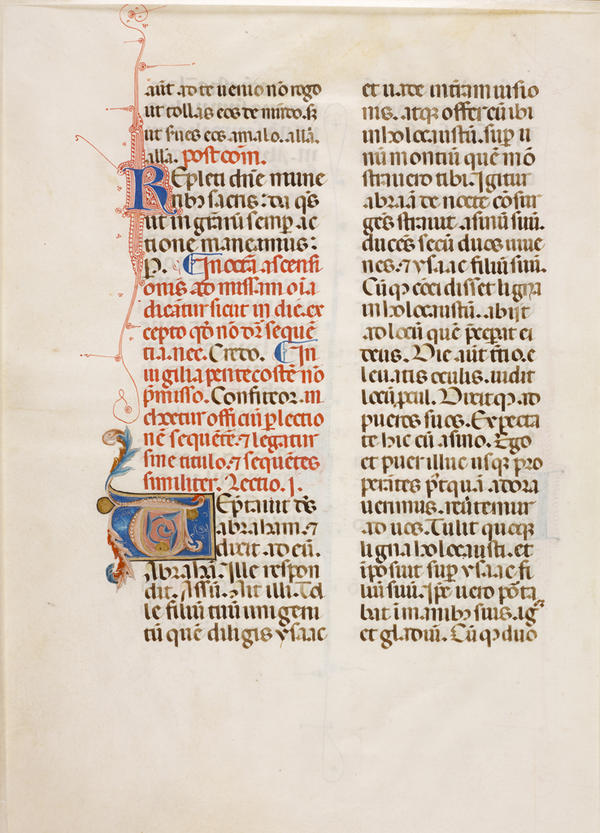 aut̄ ad te uenio nō rogo
ut tollas eos de mūdo. sꝫ
ut s̄ues eos a malo. all'a.
all'a. post com̄.
Repleti dn̄e mune
ribꝫ sacris: da q̄s
ut in gr̄arū semꝑ ac
tione maneamus:
P. In octa ascensi
onis ad missam oīa
dicāntur sicut in die. ex
cepto qd̓ nō dr̄ sequē
tia. nec. Credo. In
uigilia pentecostēn nō
p̄misso. Confiteor. in
choetur officiū ꝑ lectio
nē sequētē. ⁊ legatur
sine titulo. ⁊ sequētes
similiter. Lectio. I.
Teptauit ds̄
abraham. ⁊
dixit ad eū.
Abrahā. Ille respon
dit. Assū. Ait illi. Tol
le filiū tuū unigeni
tū quē diligis ysaac
et uade in terram uisio
nis. atqꝫ offer eū ibi
in holocaustū. suꝑ u
nū montiū quē mō
strauero tibi. Igitur
abraā de nocte cōsur
gēs strauit asinū suū.
ducēs secū duos iuue
nes. ⁊ ysaac filiū suū.
Cūqꝫ concidisset ligna
in holocaustū. abijt
ad locū quē p̄ceꝑat ei
deus. Die aut̄ t̄tio. e
leuatis oculis. uidit
locū ꝓcul. Dixitqꝫ ad
pueros suos. Expecta
te hic cū asino. Ego
et puer illuc usqꝫ pro
perātes p̄tquā adora
uerimus. reūtemur
ad uos. Tulit quoqꝫ
ligna holocausti. et
īposuit suꝑ ysaac fi
liū suū. Ip̄e uero pōta
bat ī manibꝫ suis. igī
et gladiū. Cūqꝫ duo